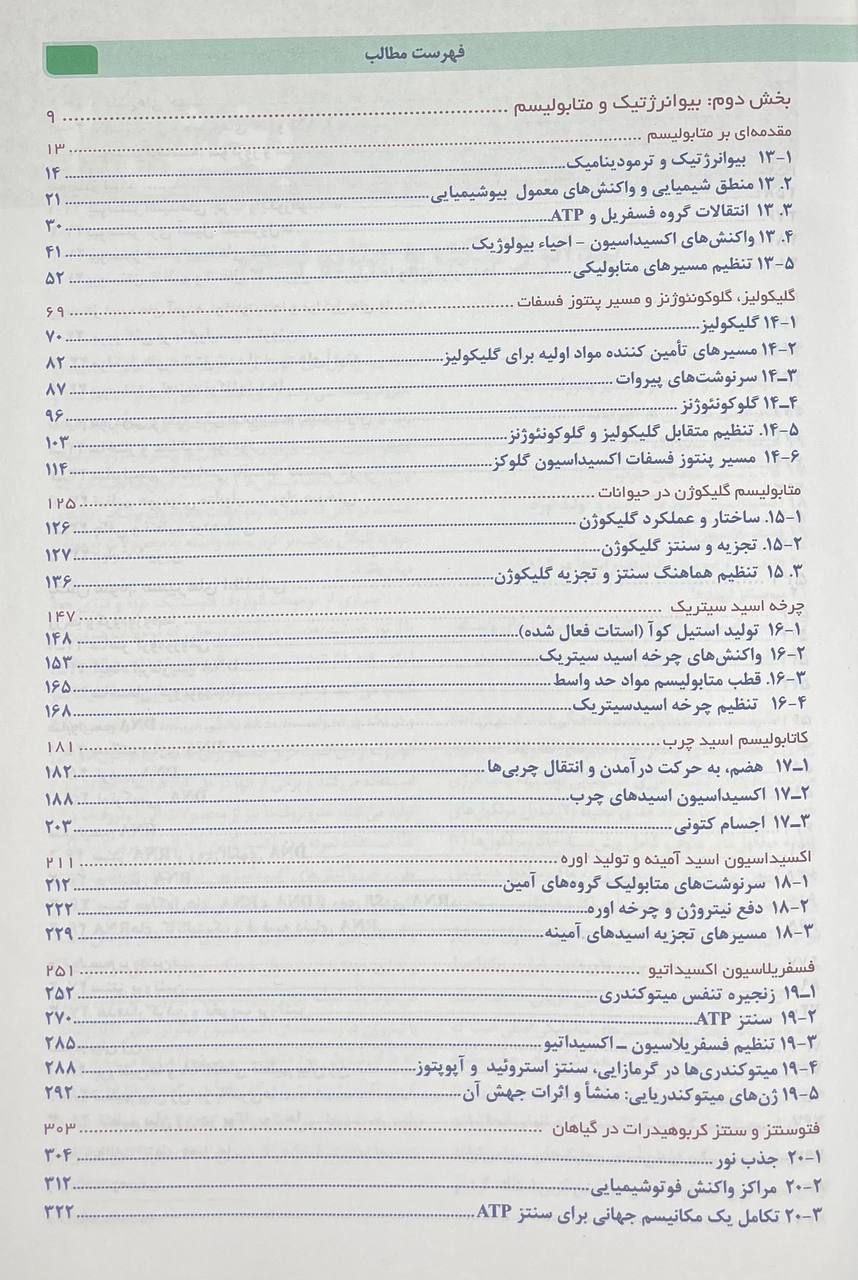 فهرست مطالب
بخش دوم: بیوانرژتیک و متابولیسم ........ ۹
مقدمه‌ای بر متابولیسم ........ ۱۳
۱۳-۱ بیوانرژتیک و ترمودینامیک ........ ۱۴
۱۳ .۲ منطق شیمیایی و واکنش‌های معمول بیوشیمیایی ........ ۲۱
۱۳ .۳ انتقالات گروه فسفریل و ATP ........ ۳۰
۱۳ .۴ واکنش‌های اکسیداسیون - احیاء بیولوژیک ........ ۴۱
۱۳-۵ تنظیم مسیرهای متابولیکی ........ ۵۲
گلیکولیز، گلوکونئوژنز و مسیر پنتوز فسفات ........ ۶۹
۱۴-۱ گلیکولیز ........ ۷۰
۱۴-۲ مسیرهای تأمین کننده مواد اولیه برای گلیکولیز ........ ۸۲
۱۴ـ۳ سرنوشت‌های پیروات ........ ۸۷
۱۴ـ۴ گلوکونئوژنز ........ ۹۶
۱۴-۵. تنظیم متقابل گلیکولیز و گلوکونئوژنز ........ ۱۰۳
۱۴-۶ مسیر پنتوز فسفات اکسیداسیون گلوکز ........ ۱۱۴
متابولیسم گلیکوژن در حیوانات ........ ۱۲۵
۱۵-۱. ساختار و عملکرد گلیکوژن ........ ۱۲۶
۱۵-۲. تجزیه و سنتز گلیکوژن ........ ۱۲۷
۱۵ .۳ تنظیم هماهنگ سنتز و تجزیه گلیکوژن ........ ۱۳۶
چرخه اسید سیتریک ........ ۱۴۷
۱۶-۱ تولید استیل کوآ (استات فعال شده) ........ ۱۴۸
۱۶-۲ واکنش‌های چرخه اسید سیتریک ........ ۱۵۳
۱۶-۳. قطب متابولیسم مواد حد واسط ........ ۱۶۵
۱۶-۴ تنظیم چرخه اسیدسیتریک ........ ۱۶۸
کاتابولیسم اسید چرب ........ ۱۸۱
۱۷ـ۱ هضم، به حرکت درآمدن و انتقال چربی‌ها ........ ۱۸۲
۱۷ـ۲ اکسیداسیون اسیدهای چرب ........ ۱۸۸
۱۷ـ۳ اجسام کتونی ........ ۲۰۳
اکسیداسیون اسید آمینه و تولید اوره ........ ۲۱۱
۱۸-۱ سرنوشت‌های متابولیک گروه‌های آمین ........ ۲۱۲
۱۸-۲ دفع نیتروژن و چرخه اوره ........ ۲۲۲
۱۸-۳ مسیرهای تجزیه اسیدهای آمینه ........ ۲۲۹
فسفریلاسیون اکسیداتیو ........ ۲۵۱
۱۹ـ۱ زنجیره تنفس میتوکندری ........ ۲۵۲
۱۹-۲ سنتز ATP ........ ۲۷۰
۱۹-۳ تنظیم فسفریلاسیون ـ اکسیداتیو ........ ۲۸۵
۱۹-۴ میتوکندری‌ها در گرمازایی، سنتز استروئید و آپوپتوز ........ ۲۸۸
۱۹-۵ ژن‌های میتوکندریایی: منشأ و اثرات جهش آن ........ ۲۹۲
فتوسنتز و سنتز کربوهیدرات در گیاهان ........ ۳۰۳
۲۰-۱ جذب نور ........ ۳۰۴
۲۰-۲ مراکز واکنش فوتوشیمیایی ........ ۳۱۲
۲۰-۳ تکامل یک مکانیسم جهانی برای سنتز ATP ........ ۳۲۲